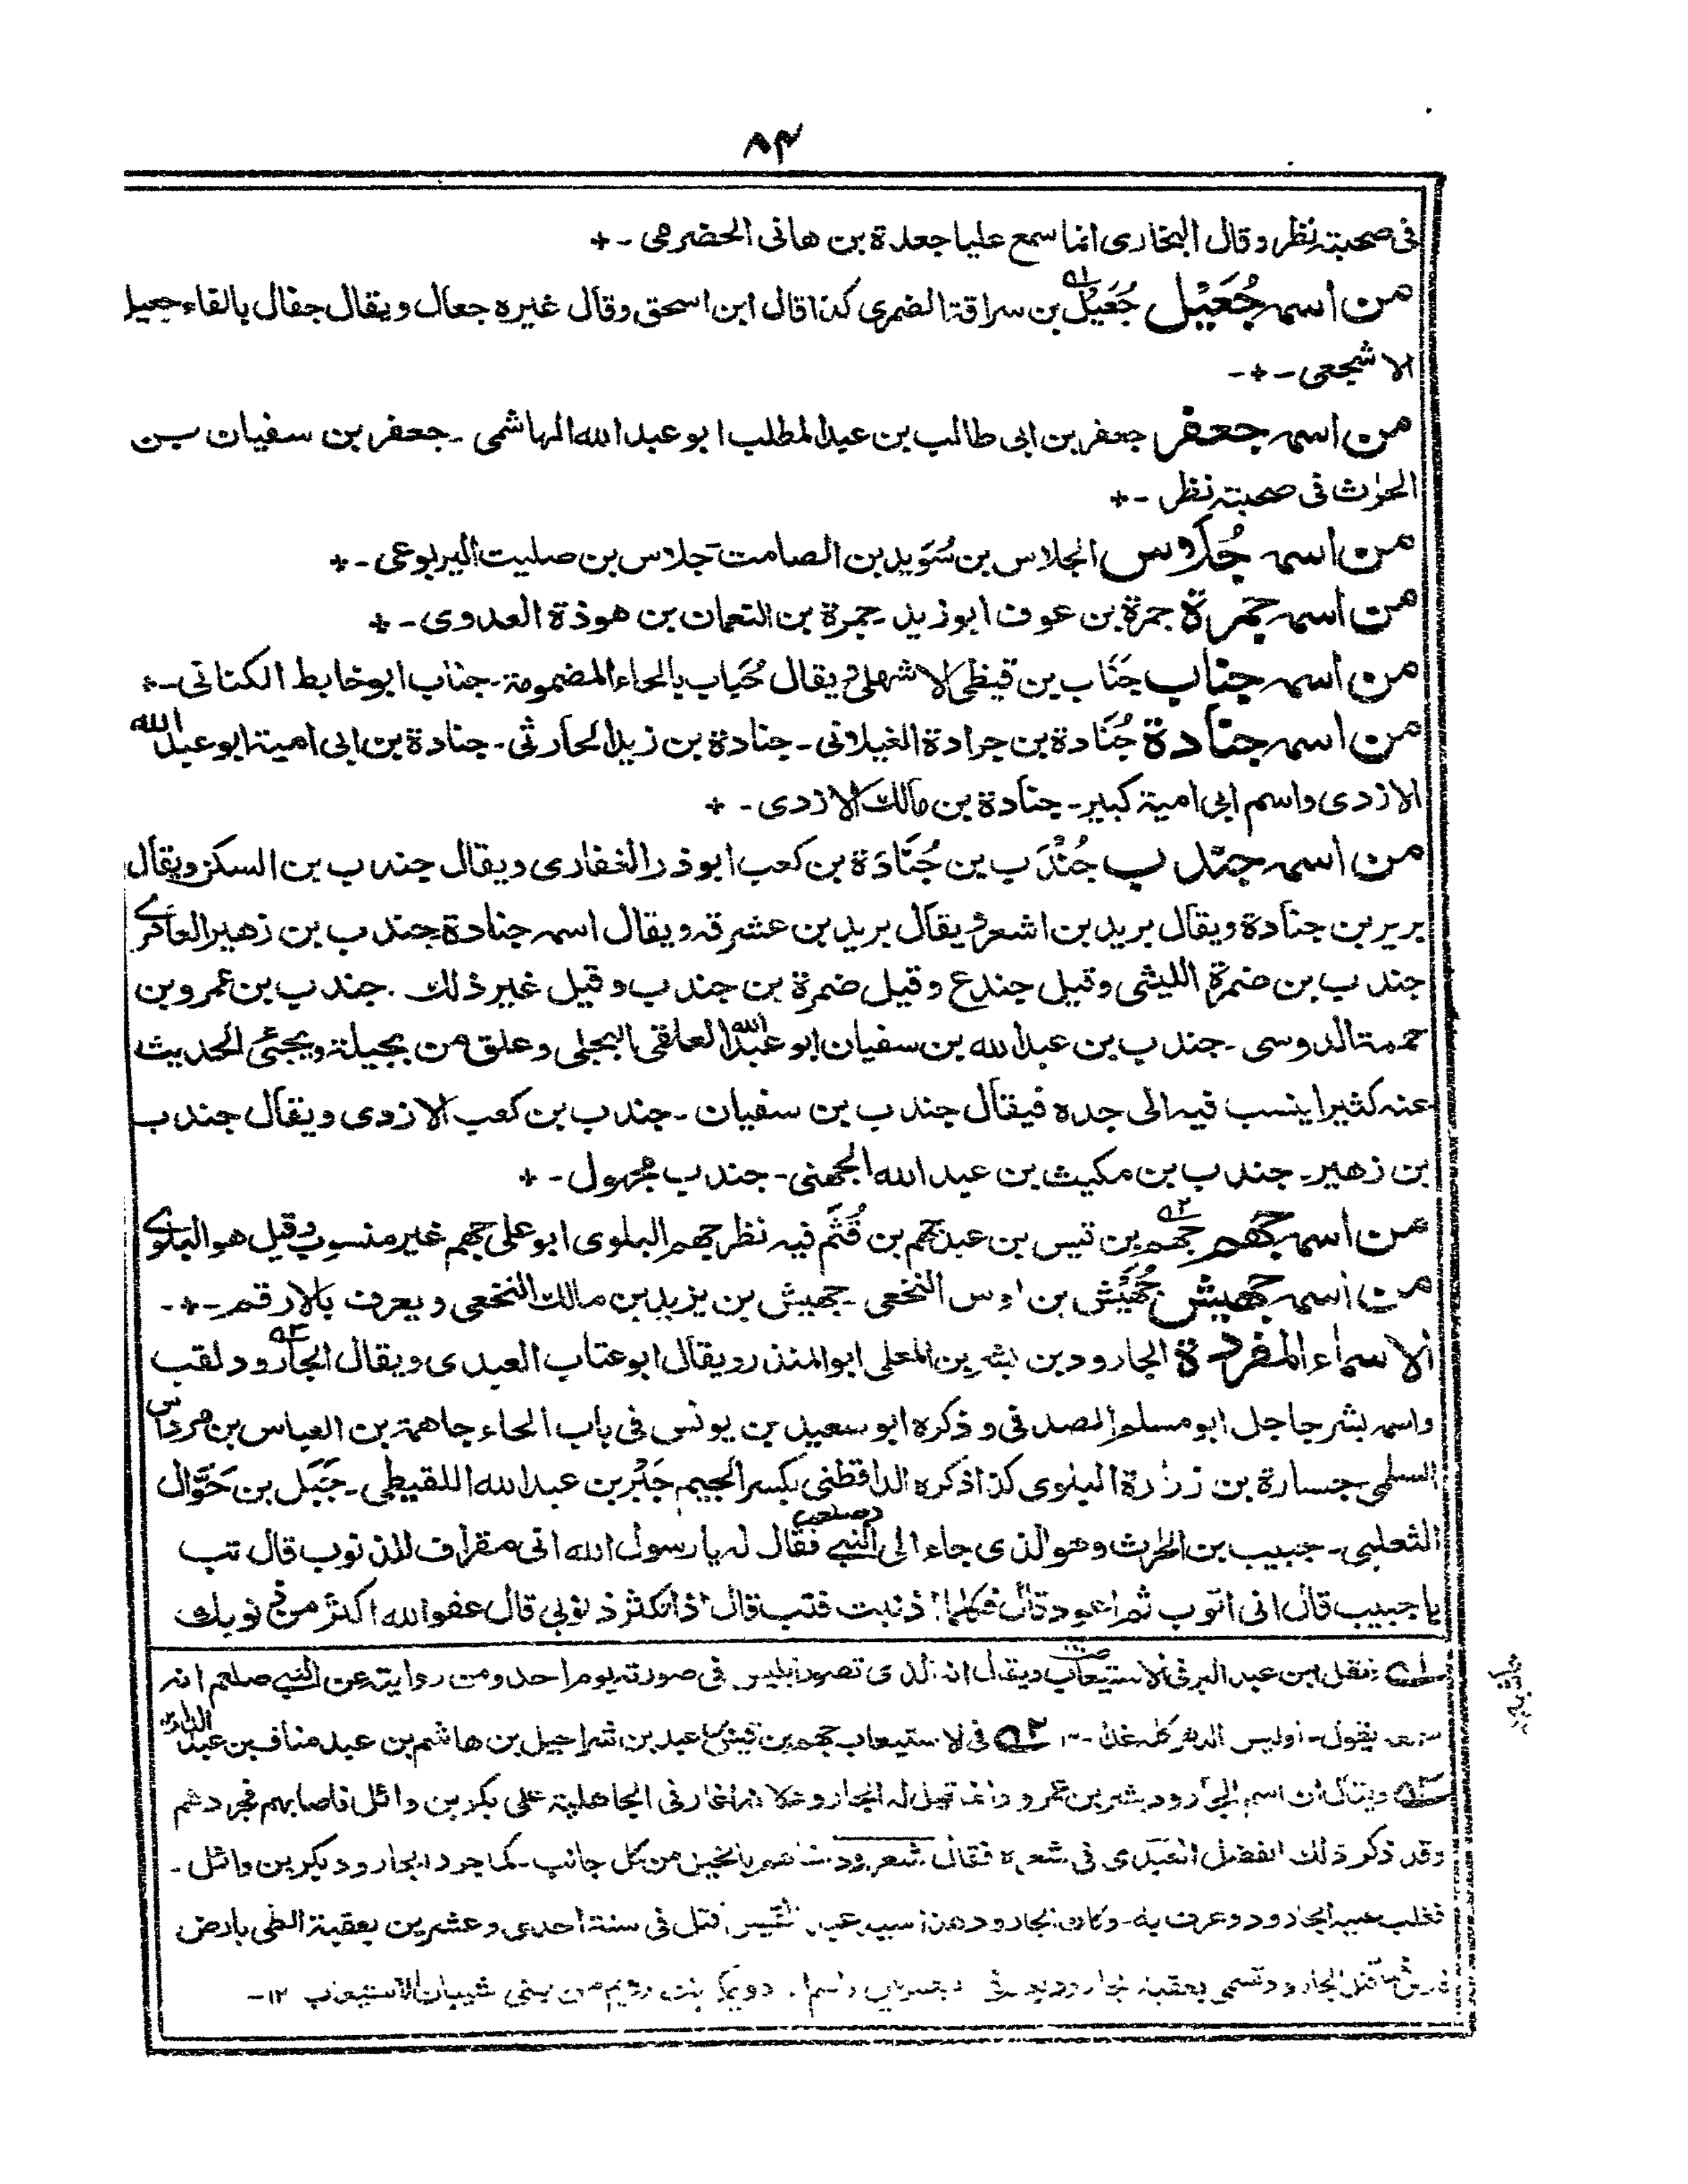 ٨٤
فى صحبته نظر وقال البخارى انما سمع عليا جعدة بن هانى الحضرمى -+
من اسمه جُعَيْل جُعَيْل بن سراقة الضمرى كذا قال ابن اسحق وقال غيره جعال ويقال جفال بالفاء جعيل
الاشجعى -+-
من اسمه جعفر جعفر بن ابى طالب بن عبدالمطلب ابو عبد الله الهاشمى - جعفر بن سفيان بن
الحرٰث فى صحبته نظر -+
من اسمه جُلاوس الجلاس بن سُوَيد بن الصامت جلاس بن صليت اليربوعى -+
من اسمه جَمرة جمرة بن عوف ابو زيد - جمرة بن النعمان بن هوذة العدوى -+
من اسمه جناب جَنَاب بن قيظى الاشهلى ويقال حُباب بالحاء المضمومة - جناب ابو خابط الكنانى -+
من اسمه جنادة جُنَادة بن جرادة الغيلانى - جنادة بن زيد الحارثى - جنادة بن ابى امية ابو عبد الله
الازدى واسم ابى امية كبير - جنادة بن مالك الازدى -+
من اسمه جندب جُنْدَب بن جُنَادَة بن كعب ابو ذر الغفارى ويقال جندب بن السكن ويقال
برير بن جنادة ويقال بريد بن اشعر ويقال بريد بن عشرقه ويقال اسمه جنادة جندب بن زهير العامرے
جندب بن ضمرة الليثى وقيل جندع وقيل ضمرة بن جندب وقيل غير ذلك . جندب بن عمرو بن
حممة الدوسى - جندب بن عبد الله بن سفيان ابو عبد الله العلقى البجلى وعلق من بجيلة ويجئى الحديث
عنه كثيرا ينسب فيه الى جده فيقال جندب بن سفيان - جندب بن كعب الازدى ويقال جندب
بن زهير - جندب بن مكيث بن عبد الله الجهنى - جندب مجهول -+
من اسمه جَهم جهم بن قيس بن عبد جهم بن قُثَم فيه نظر جهم البلوى ابو على جهم غير منسوب وقيل هو البلوے
من اسمه جهيش جُهَيْش بن اوس النخعى - جهيش بن يزيد بن مالك النخعى ويعرف بالارقم -+-
الاسماء المفردة الجارود بن بشر بن المعلى ابو المنذر ويقال ابو عتاب العبدى ويقال الجارود لقب
واسمه بشر جاجل ابو مسلم الصدفى وذكره ابو سعيد بن يونس فى باب الحاء جاهمة بن العباس بن مرداس
السلمى - جسارة بن زرٰرة البلوى كذا ذكره الداقطنى بكسر الجيم جَبْر بن عبد الله اللقيطى - جَبَل بن حَوَّال
الثعلبى - جبيب بن الحٰرث وهو الذى جاء الى النبى صلعم فقال له يا رسول الله انى مقراف للذنوب قال تب
يا جبيب قال انى اتوب ثم اعود قال فكلما اذنبت فتب قال اذا تكثر ذنوبى قال عفو الله اكثر من ذنوبك
ـ١ـ نقل ابن عبد البر فى الاستيعاب ويقال انه الذى تصور ابليس فى صورته يوم احد ومن روايته عن النبى صلعم انه
سمعه يقول - اوليس الدهر كله غدا - ١٢ ـ٢ـ فى لاستيعاب جهم بن قيس بن عبد بن شراحيل بن هاشم بن عبد مناف بن عبد الدار
ـ٣ـ ويقال ان اسم الجارود بشر بن عمرو وانما قيل له الجارود لانه اغار فى الجاهلية على بكر بن وائل فاصابهم فجردهم
وقد ذكر ذلك المفضل العبدى فى شعره فقال شعر ودسناهم بالخيل من كل جانب - كما جرد الجارود بكر بن وائل -
فغلب عليه الجارود وعرف به - وكان الجارود هذا سيد عبد القيس قتل فى سنة احدى وعشرين بعقبة الطى بارض
فارس قتل الجارود وتسمى بعقبة الجارود بنت رويم من بنى شيبان الاستيعاب ١٢-